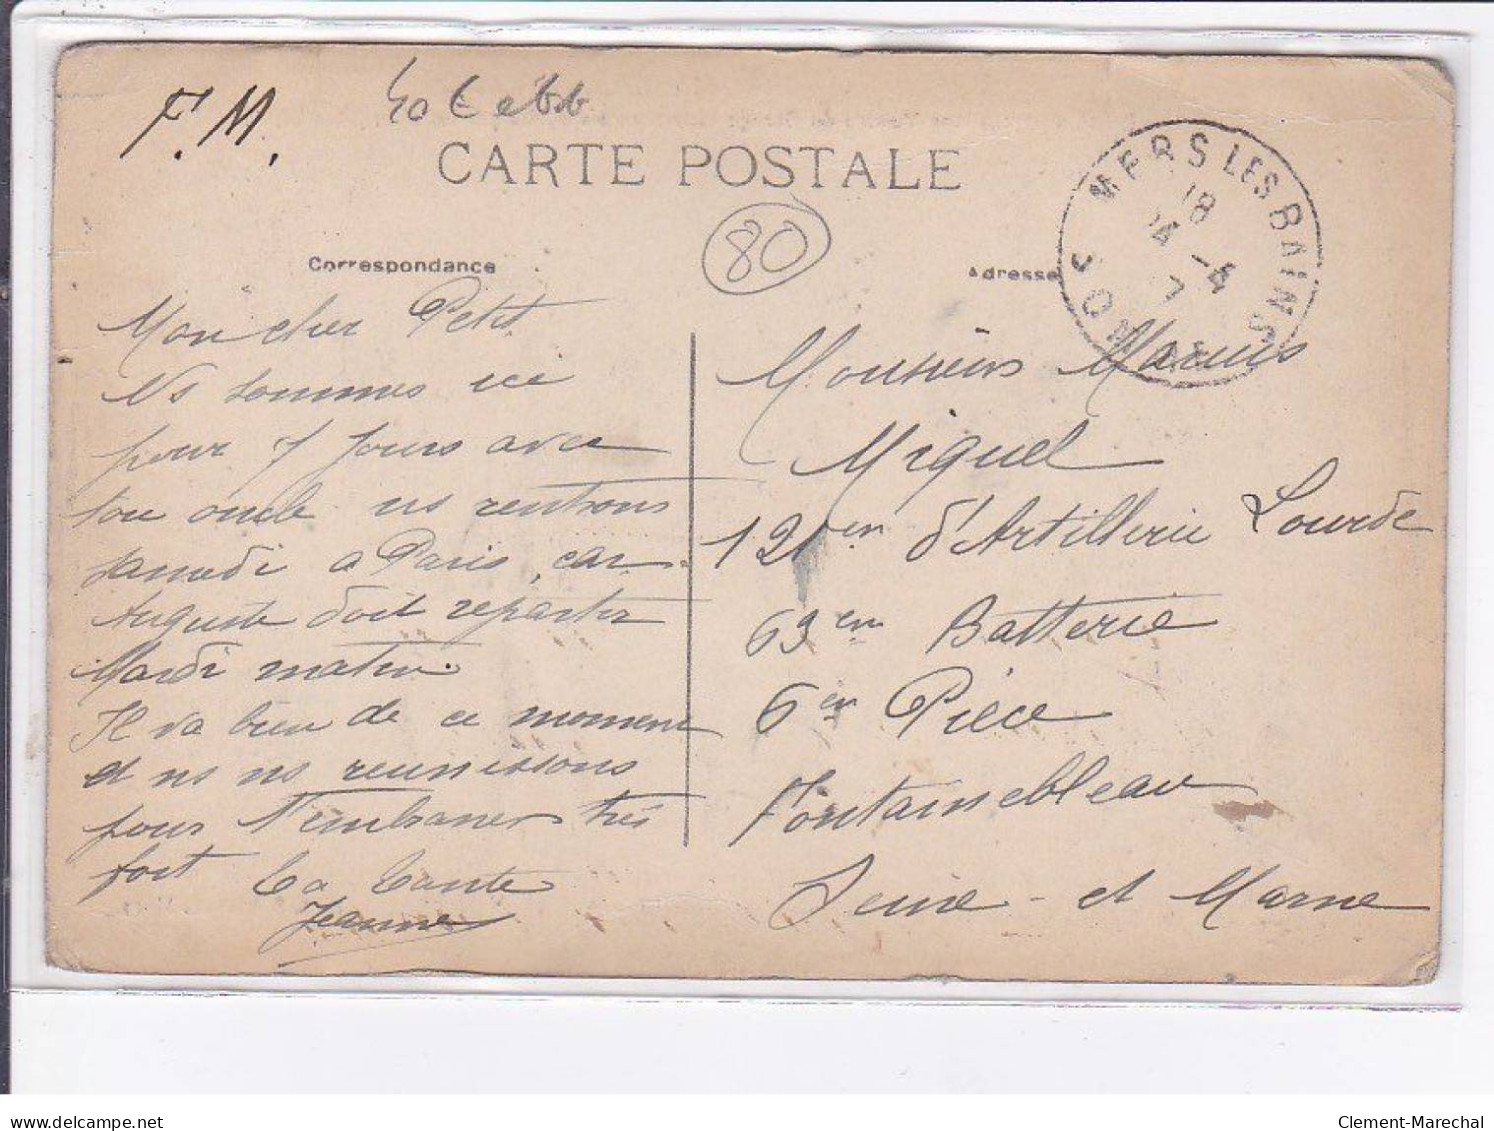 F.M.
40 € ebb
CARTE POSTALE
80
Correspondance
Adresse
MERS LES BAINS
18
4 -4
SOMME
Mon cher Petit
Ns sommes ici
pour 7 jours avec
ton oncle ns rentrons
samedi a Paris, car
Auguste doit repartir
Mardi matin.
Il va bien de ce moment
et ns ns reunissons
pour t'embrasser très
fort Ta tante
Jeanne
Monsieur Marius
Miguel
121 em d'Artillerie Lourde
69 em Batterie
6 em Pièce
Fontainebleau
Seine-et Marne
delcampe.net
Clement-Marechal